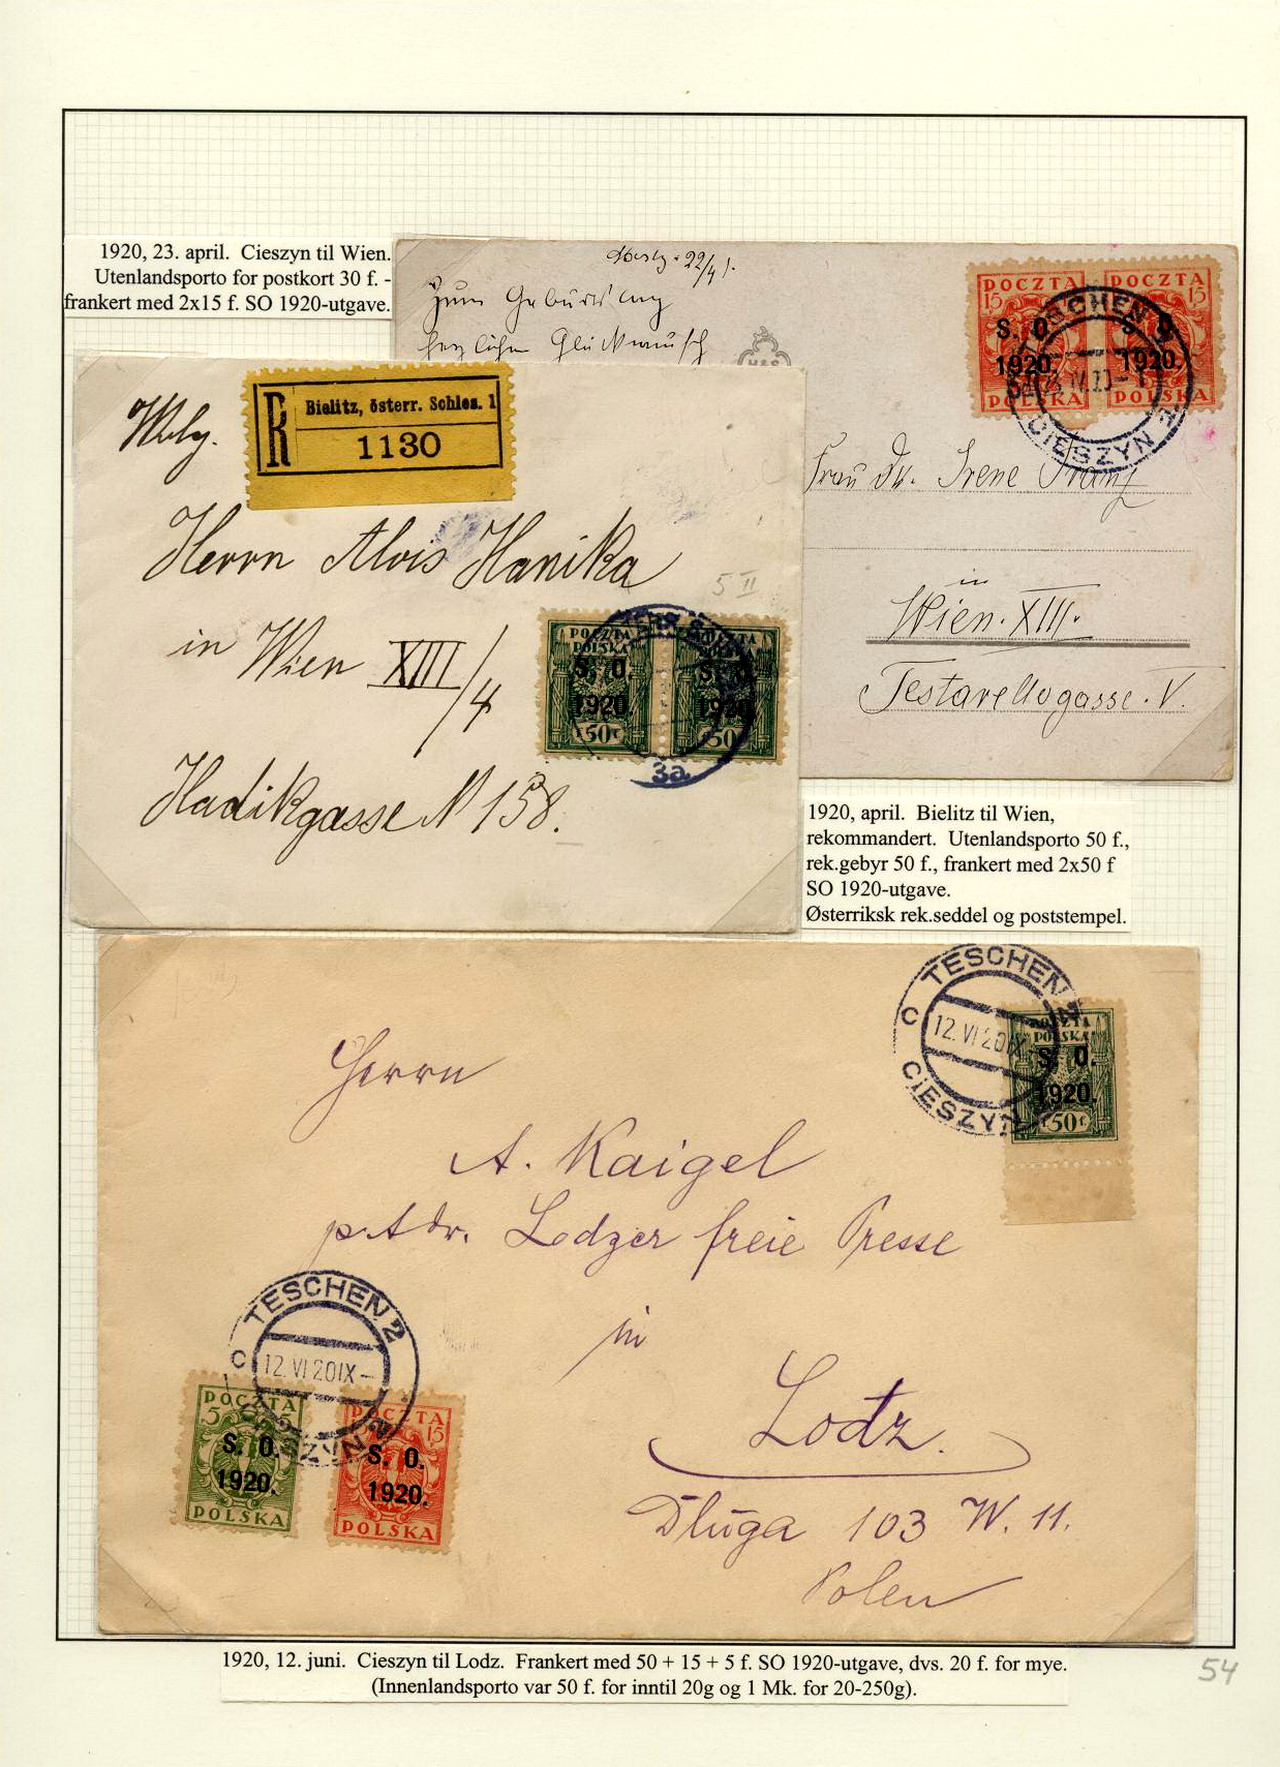 1920, 23. april. Cieszyn til Wien.
Utenlandsporto for postkort 30 f. -
frankert med 2x15 f. SO 1920-utgave.
22/4
Zum Geburtstag
herzlichen Glückwunsch
H&S
POCZTA POCZTA
15 15
S. O. S. O.
1920. 1920.
POLSKA POLSKA
TESCHEN
CIESZYN
Frau Dr. Irene Franz
in
Wien. XIII.
Testarellogasse. V.
R
Bielitz, österr. Schles. 1
1130
Herrn Alois Hanika
in Wien XIII/4
Hadikgasse N 158.
5 II
POCZTA POCZTA
POLSKA POLSKA
S. O. S. O.
1920. 1920.
50 f 50
3a
1920, april. Bielitz til Wien,
rekommandert. Utenlandsporto 50 f.,
rek.gebyr 50 f., frankert med 2x50 f
SO 1920-utgave.
Østerriksk rek.seddel og poststempel.
TESCHEN 2
C 12.VI 20 IX
CIESZYN
POCZTA
POLSKA
S. O.
1920.
f 50 f
Herrn
A. Kaigel
p. Adr. Lodzer freie Presse
in
Lodz.
Dluga 103 W. 11.
Polen
TESCHEN 2
C 12.VI 20 IX -
CIESZYN 2
POCZTA POCZTA
5 5 15
S. O. S. O.
1920. 1920.
POLSKA POLSKA
1920, 12. juni. Cieszyn til Lodz. Frankert med 50 + 15 + 5 f. SO 1920-utgave, dvs. 20 f. for mye.
(Innenlandsporto var 50 f. for inntil 20g og 1 Mk. for 20-250g).
54